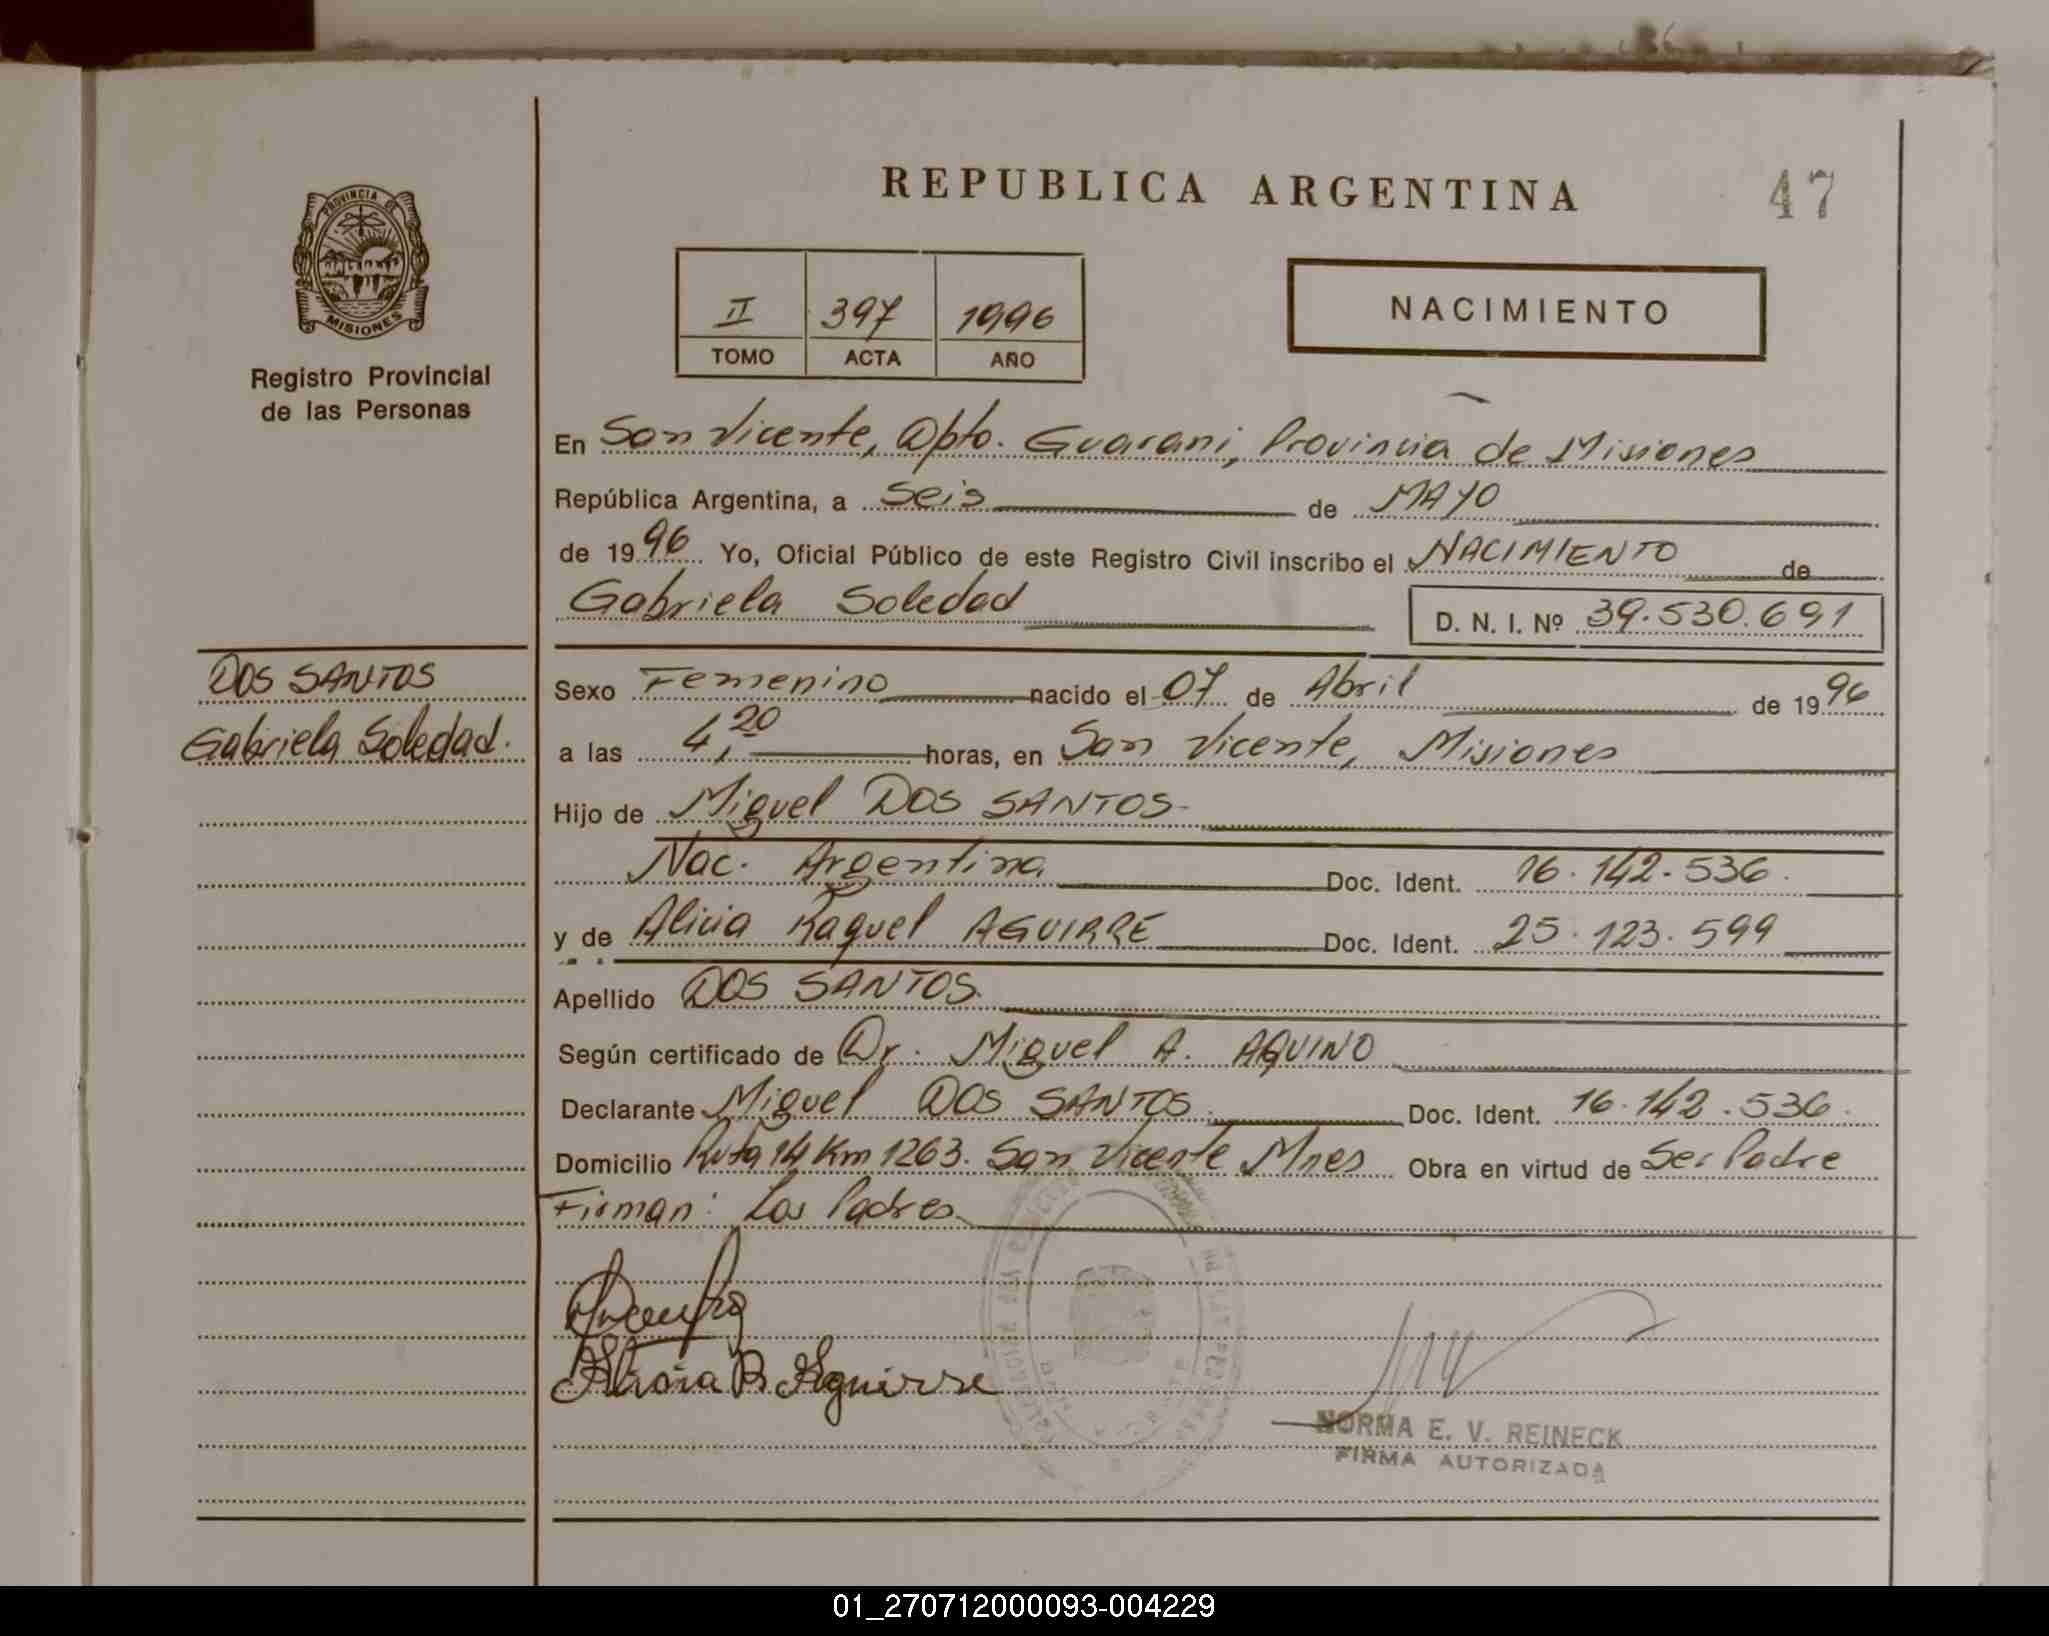 REPUBLICA ARGENTINA
47
PROVINCIA DE
MISIONES
Registro Provincial
de las Personas
II 397 1996
TOMO ACTA AÑO
NACIMIENTO
En San Vicente, Dpto. Guarani, Provincia de Misiones
República Argentina, a Seis de MAYO
de 1996 Yo, Oficial Público de este Registro Civil inscribo el NACIMIENTO de
Gabriela Soledad D. N. I. Nº 39.530.691
DOS SANTOS
Gabriela Soledad.
Sexo Femenino nacido el 07 de Abril de 1996
a las 4,20 horas, en San Vicente, Misiones
Hijo de Miguel DOS SANTOS
Nac. Argentina Doc. Ident. 16.142.536.
y de Alicia Raquel AGUIRRE Doc. Ident. 25.123.599
Apellido DOS SANTOS.
Según certificado de Dr. Miguel A. AQUINO
Declarante Miguel DOS SANTOS. Doc. Ident. 16.142.536.
Domicilio Ruta 14 Km 1263. San Vicente Mnes Obra en virtud de Ser Padre
Firman: Los Padres
Alicia R. Aguirre
NORMA E. V. REINECK
FIRMA AUTORIZADA
01_270712000093-004229